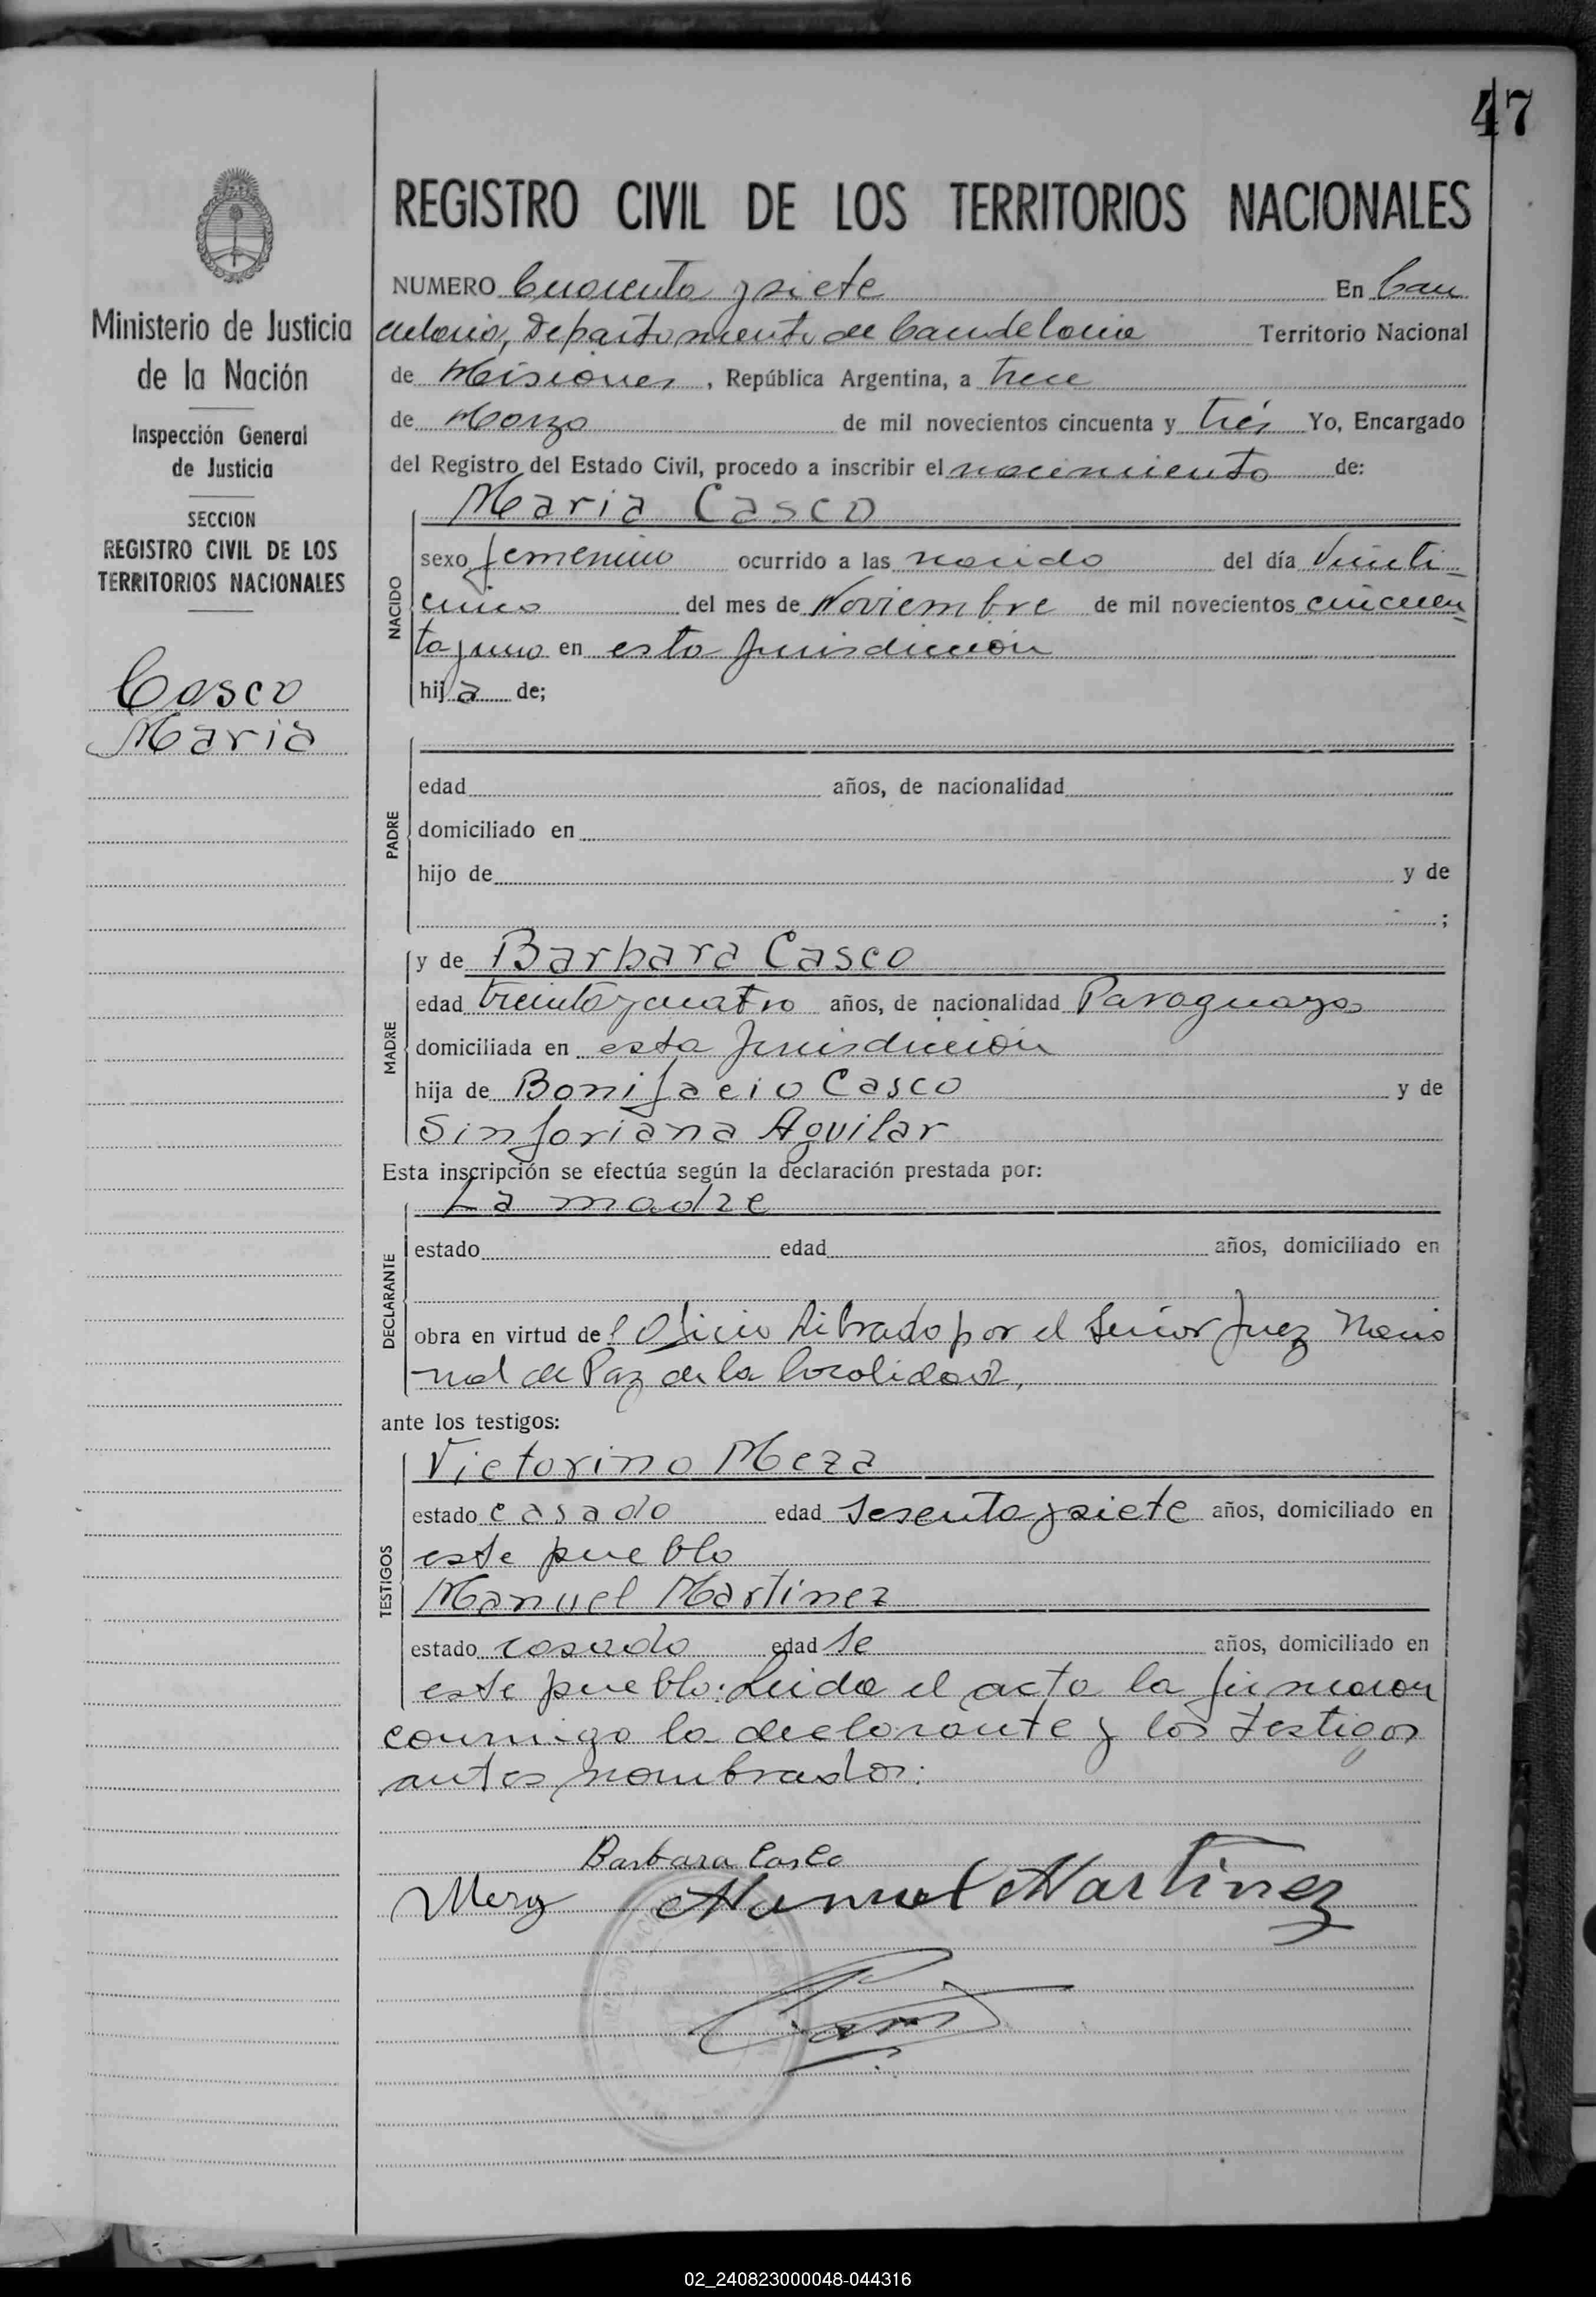 47
REGISTRO CIVIL DE LOS TERRITORIOS NACIONALES
NUMERO Cuarenta y siete En Can
delaria, Departamento de Candelaria Territorio Nacional
de Misiones, República Argentina, a trece
de Marzo de mil novecientos cincuenta y trés Yo, Encargado
del Registro del Estado Civil, procedo a inscribir el nacimiento de:
Maria Casco
NACIDO
sexo femenino ocurrido a las nacido del día Veinti-
cinco del mes de Noviembre de mil novecientos cincuen
ta y uno en esta Jurisdicción
hija de;
PADRE
edad años, de nacionalidad
domiciliado en
hijo de y de
;
MADRE
y de Barbara Casco
edad treinta y cuatro años, de nacionalidad Paraguaya
domiciliada en esta Jurisdicción
hija de Bonifacio Casco y de
Sinforiana Aguilar
Esta inscripción se efectúa según la declaración prestada por:
La madre
DECLARANTE
estado edad años, domiciliado en
obra en virtud del Oficio librado por el Señor Juez Nacio
nal de Paz de la localidad,
ante los testigos:
TESTIGOS
Victorino Meza
estado casado edad Sesenta y siete años, domiciliado en
este pueblo
Manuel Martinez
estado casado edad Se años, domiciliado en
este pueblo. Leida el acta la firmaron
conmigo la declarante y los testigos
antes nombrados.
Barbara Casco
Meza Manuel Martinez
Ministerio de Justicia
de la Nación
Inspección General
de Justicia
SECCION
REGISTRO CIVIL DE LOS
TERRITORIOS NACIONALES
Casco
Maria
02_240823000048-044316